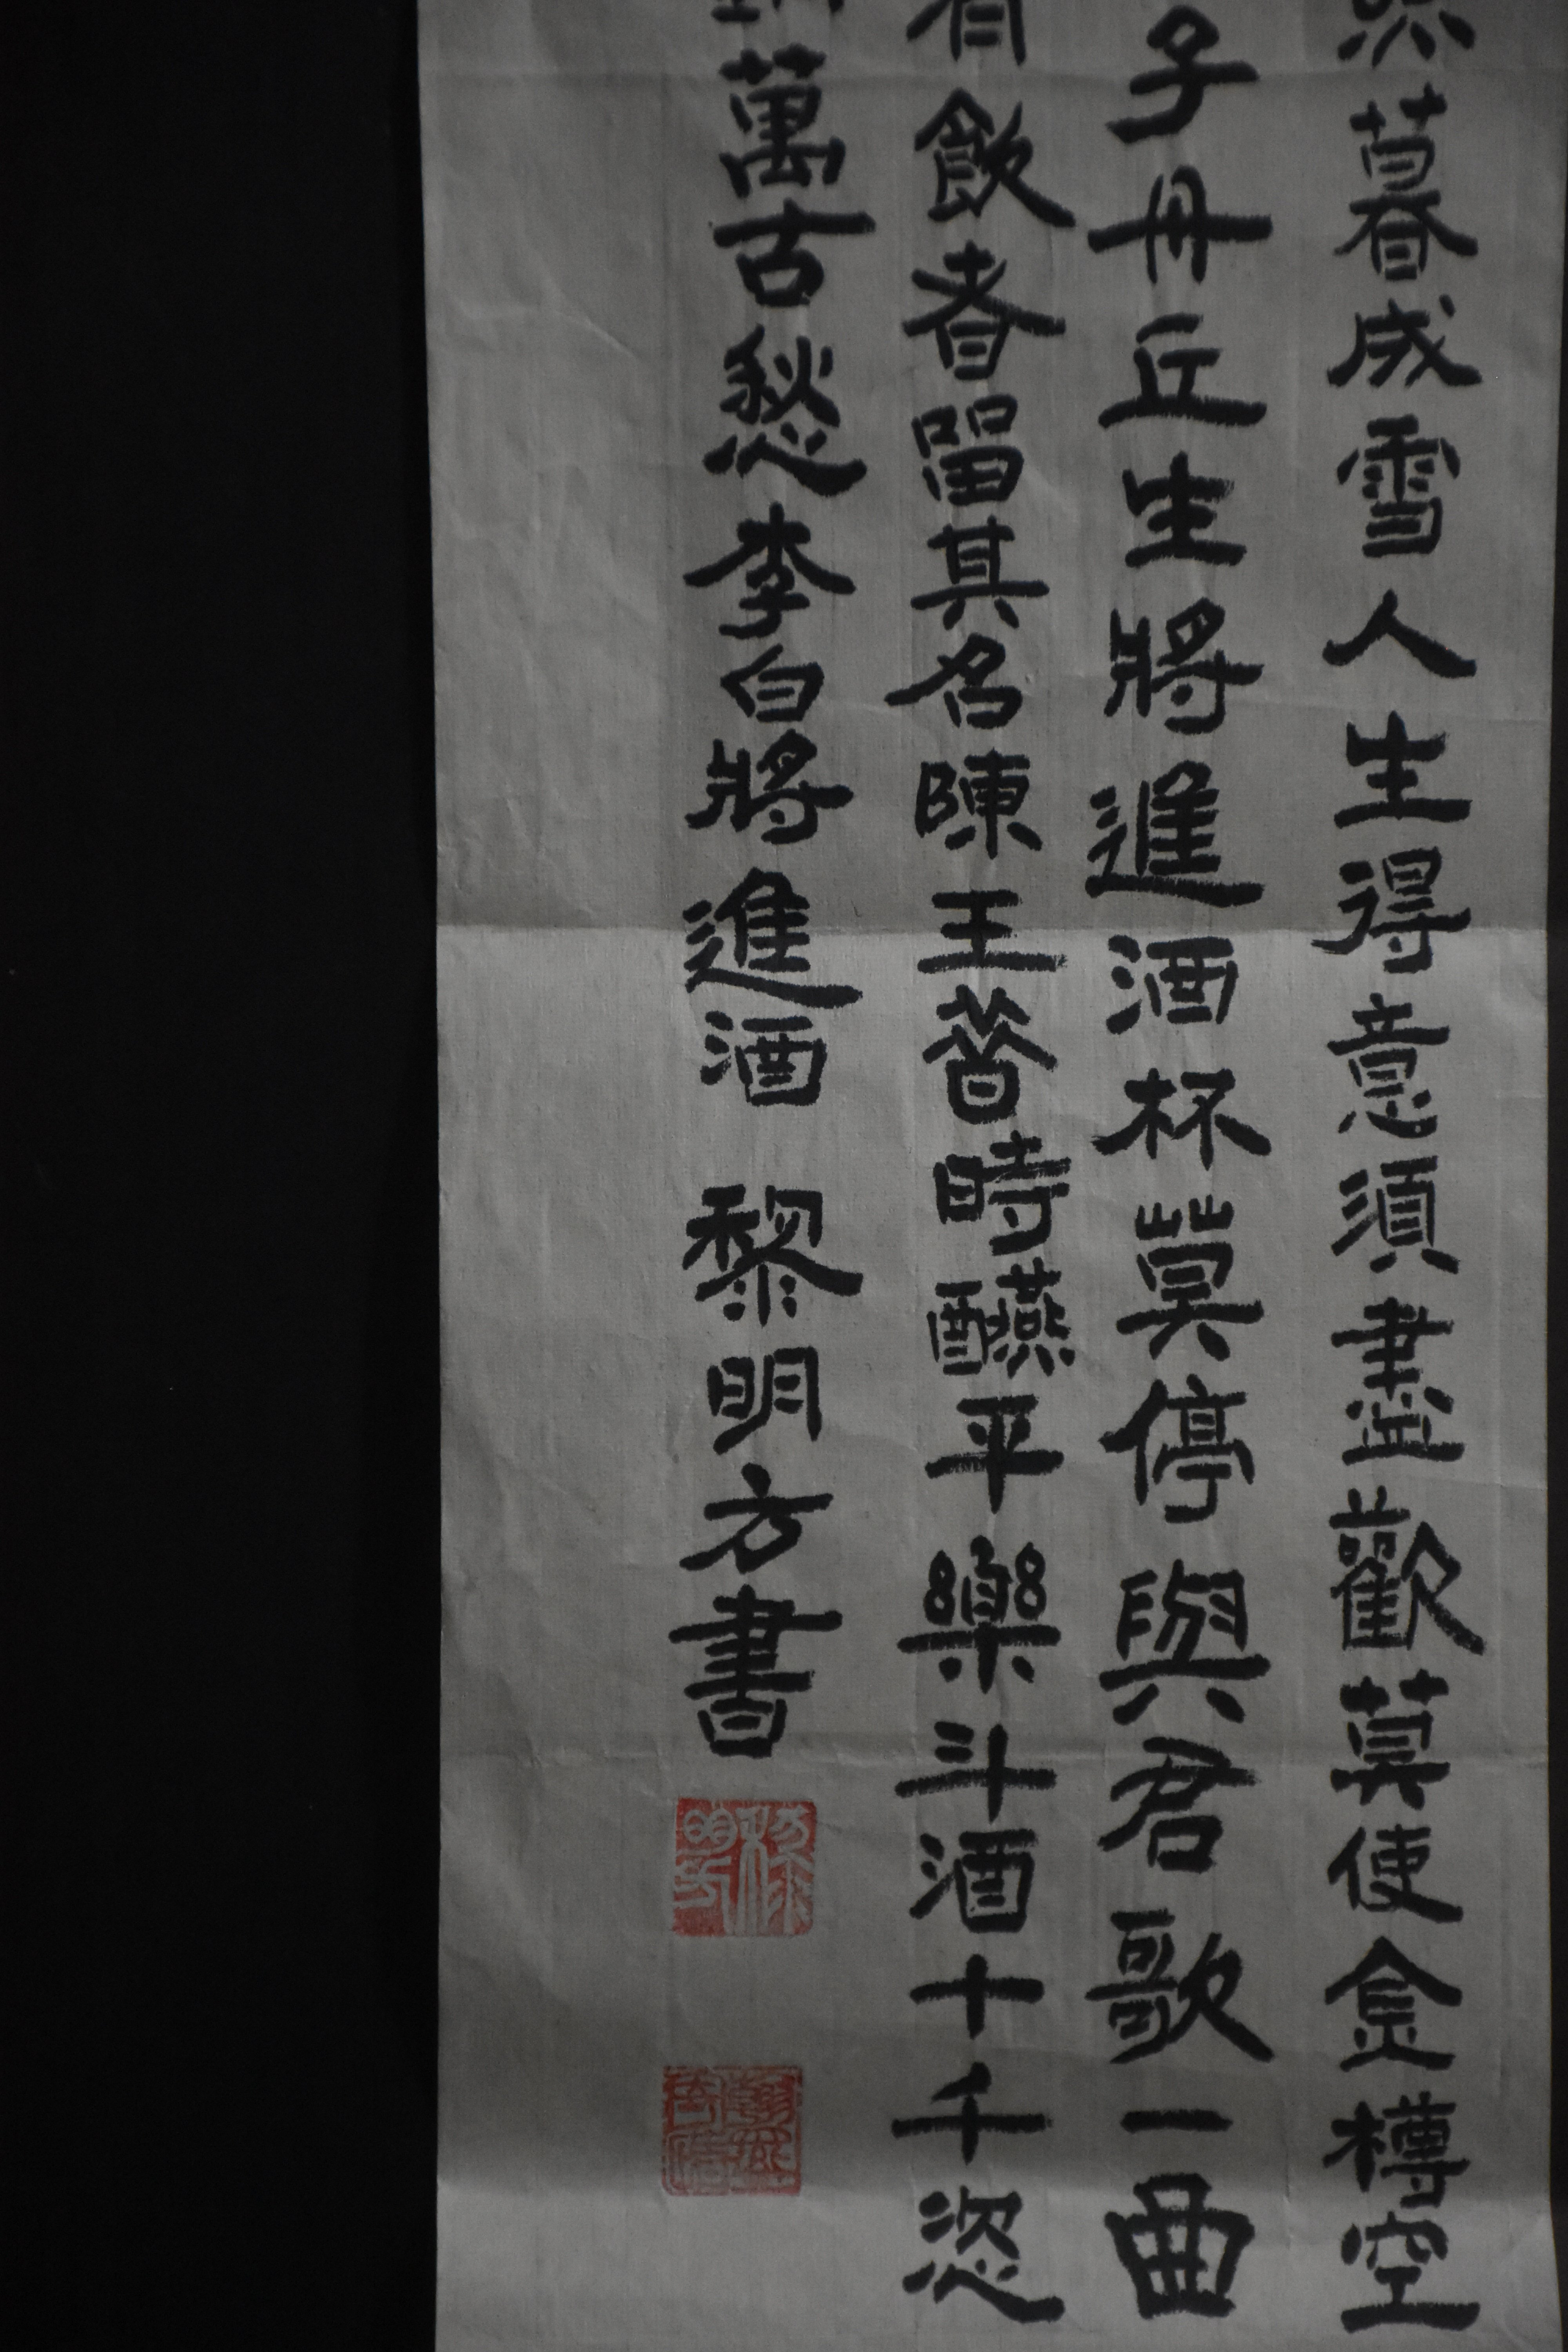 絲暮成雪人生得意須盡歡莫使金樽空
子丹丘生將進酒杯莫停與君歌一曲
有飲者留其名陳王昔時醼平樂斗酒十千恣
萬古愁李白將進酒 黎明方書